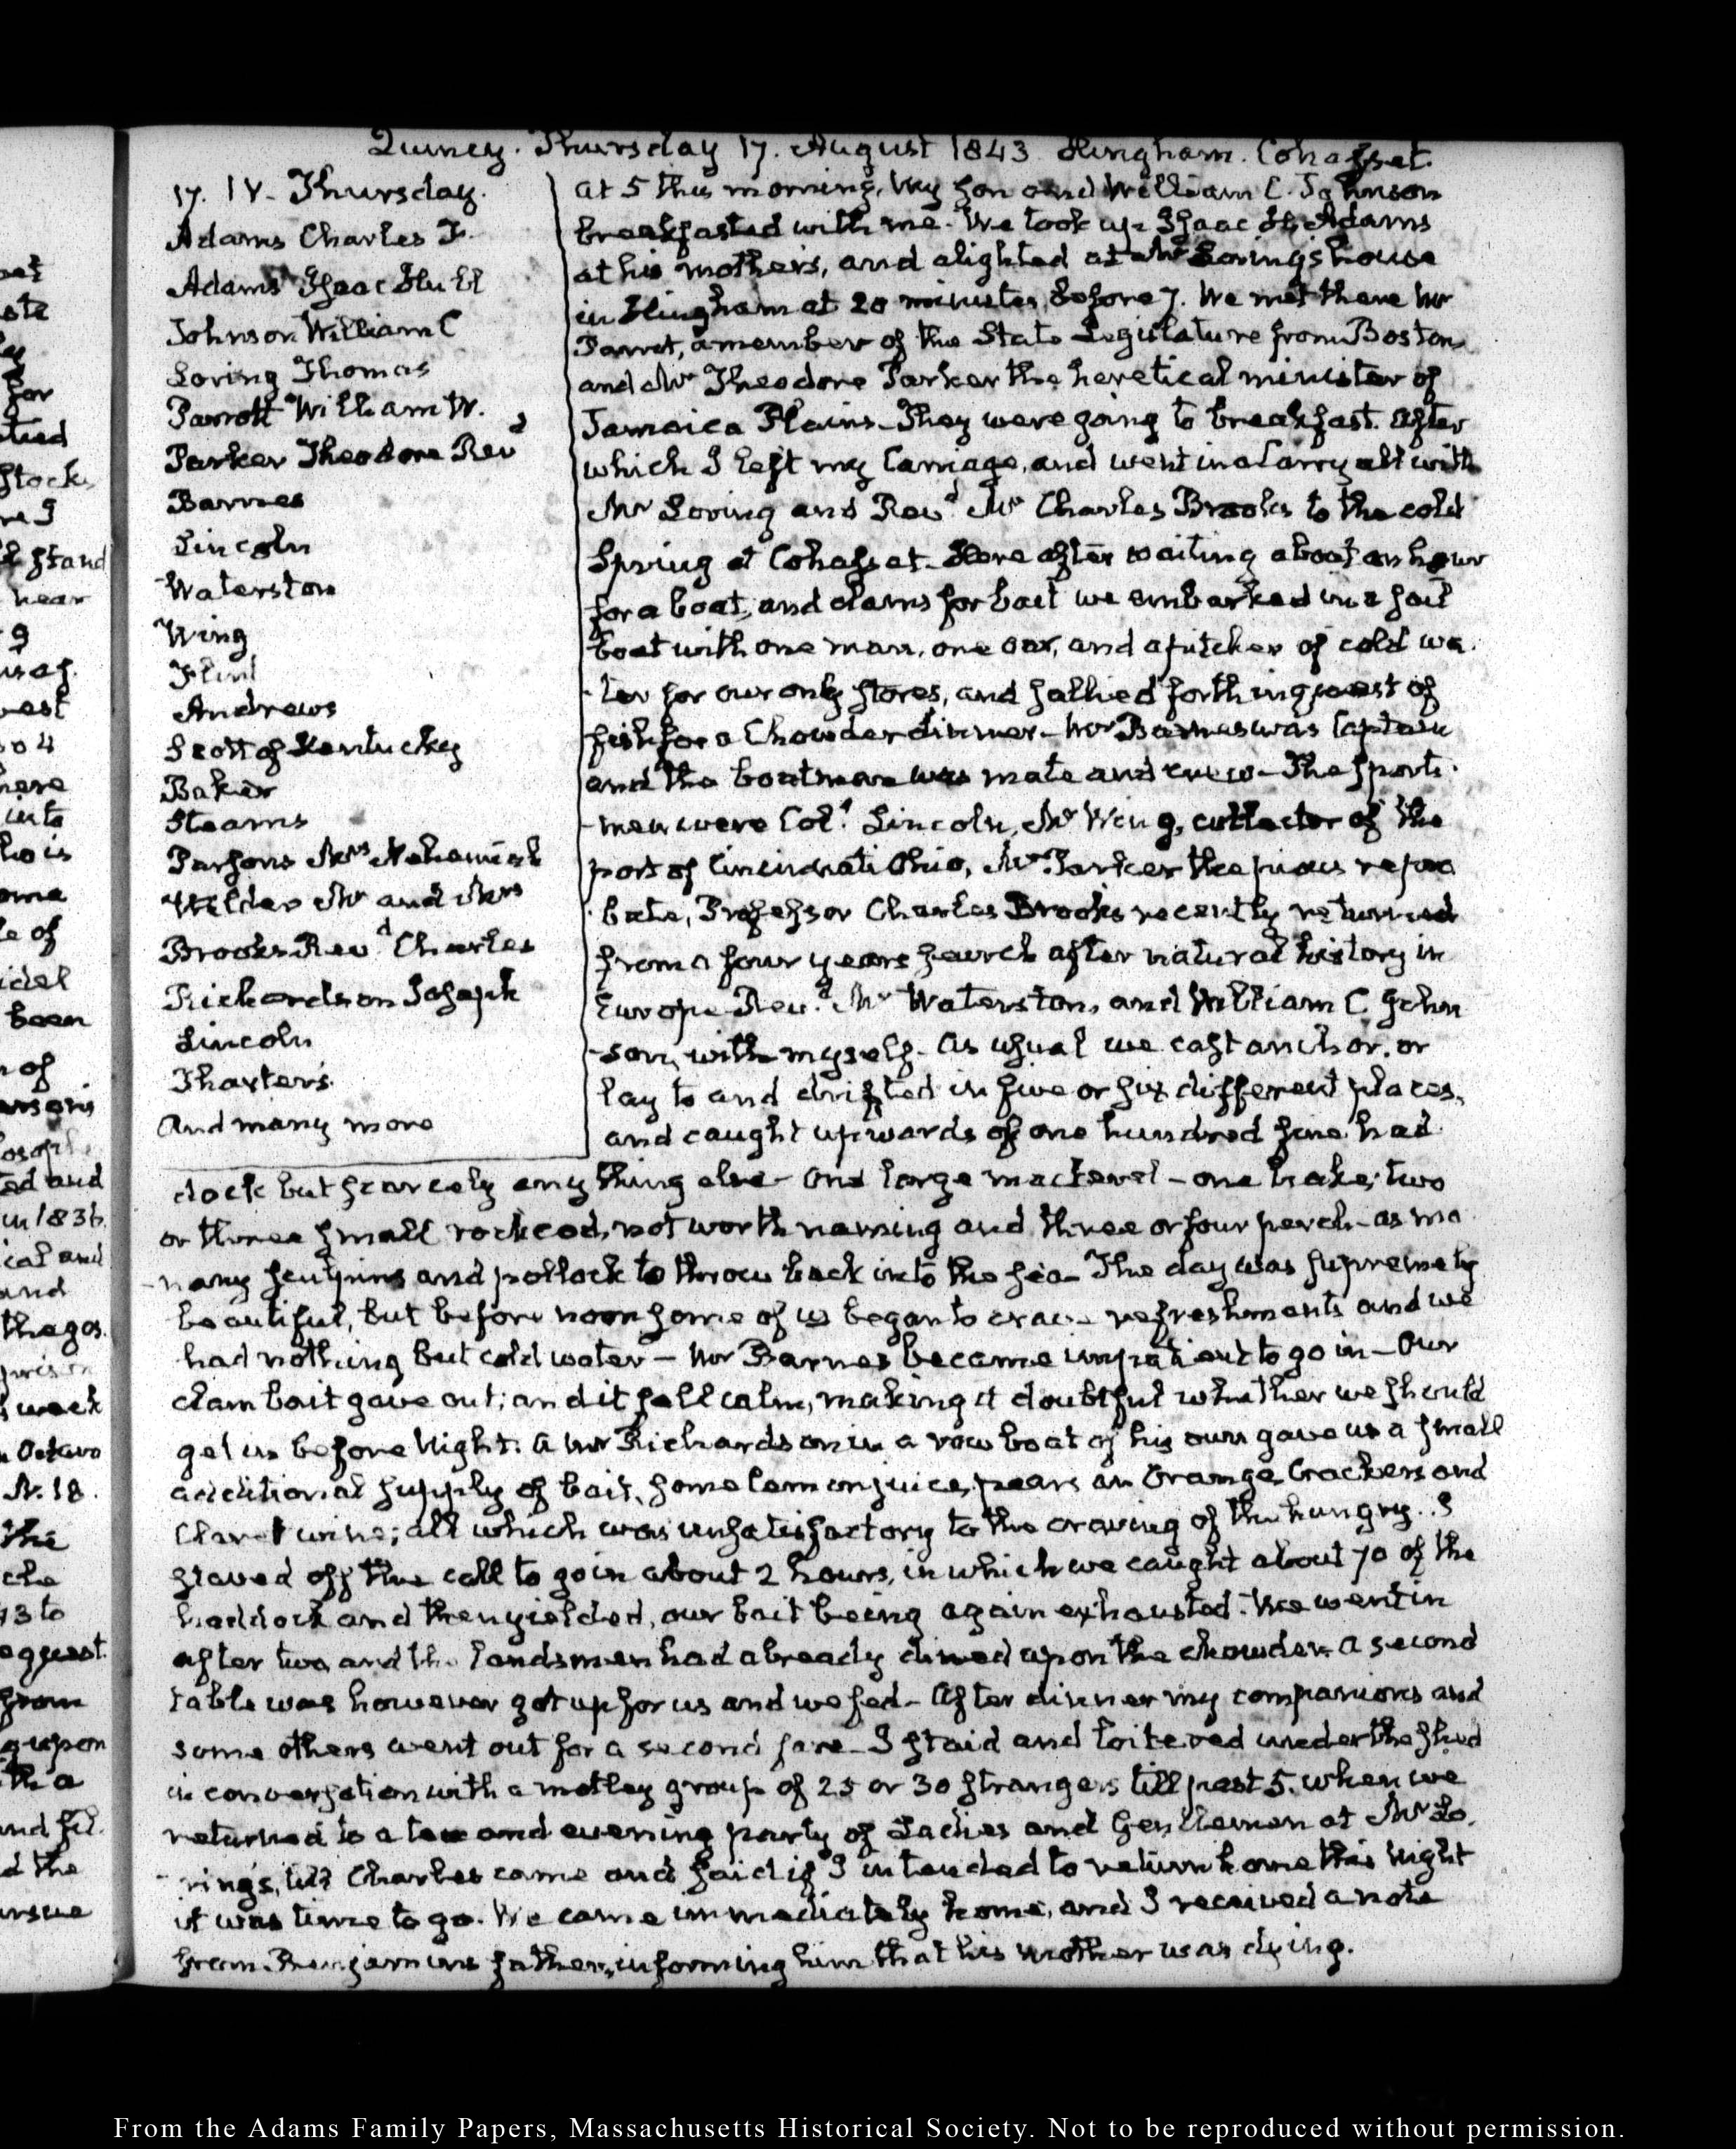 Quincy. Thursday 17. August 1843. Hingham. Cohasset.
17. IV. Thursday.
Adams Charles F.
Adams Isaac Hull
Johnson William C
Loring Thomas
Parrott William W.
Parker Theodore Revd
Barnes
Lincoln
Waterston
Wing
Flint
Andrews
Scott of Kentucky
Baker
Stearns
Parsons Mrs Nehemiah
Wilder Mr and Mrs
Brooks Revd. Charles
Richardson Joseph
Lincoln
Thaxter's
And many more
at 5 this morning, My son and William C. Johnson
breakfasted with me. We took up Isaac H. Adams
at his mothers, and alighted at Mr Loring's house
in Hingham at 20 minutes before 7. We met there Mr
Parrot, a member of the State Legislature from Boston
and Mr Theodore Parker the heretical minister of
Jamaica Plains— They were going to breakfast. After
which I left my Carriage, and went in a Carry all with
Mr Loring and Revd. Mr Charles Brooks to the cold
Spring at Cohasset. Here after waiting about an hour
for a boat, and clams for bait we embarked in a sail
boat with one man, one oar, and a pitcher of cold wa-
-ter for our only stores, and sallied forth in quest of
fish for a Chowder dinner— Mr Barnes was Captain
and the boatman was mate and crew— The sports-
-men were Coll. Lincoln, Mr Wing, collector of the
port of Cincinnati Ohio, Mr Parker the pious repro
-bate, Professor Charles Brooks recently returned
from a four years search after natural history in
Europe Revd. Mr Waterston, and William C. John
-son, with myself. As usual we cast anchor, or
lay to and drifted in five or six different places,
and caught upwards of one hundred fine had-
dock but scarcely any thing else— One large mackerel— one hake, two
or three small rock cod, not worth naming and three or four perch— as ma
-nany sculpins and pollock to throw back into the sea— The day was supremely
beautiful, but before noon some of us began to crave refreshments and we
had nothing but cold water— Mr Barnes became impatient to go in— Our
clam bait gave out; and it fell calm, making it doubtful whether we should
get in before Night. A Mr Richardson in a row boat of his own gave us a small
additional supply of bait, some lemon juice, pears an Orange Crackers and
Claret wine; all which was unsatisfactory to the craving of the hungry. I
staved off the call to go in about 2 hours, in which we caught about 70 of the
haddock and then yielded, our bait being again exhausted. We went in
after two and the landsmen had already dined upon the chowder. A second
table was however got up for us and we fed— After dinner my companions and
some others went out for a second fare— I staid and loitered under the shed
in conversation with a motley group of 25 or 30 strangers till past 5. when we
returned to a tea and evening party of Ladies and Gentlemen at Mr Lo-
-ring's, till Charles came and said if I intended to return home this Night
it was time to go. We came immediately home, and I received a note
from Benjamins father, informing him that his mother was dying.
From the Adams Family Papers, Massachusetts Historical Society. Not to be reproduced without permission.